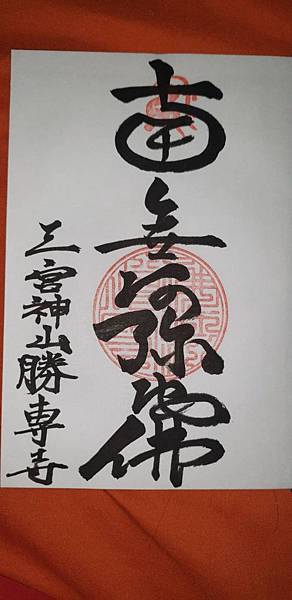 南無阿弥陀佛
三宮神山勝専寺